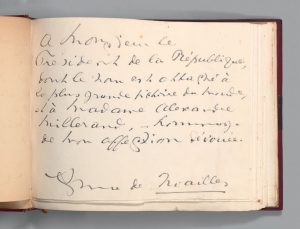 A Monsieur le
Président de la République,
dont le nom est attaché à
la plus grande victoire du monde,
et à Madame Alexandre
Millerand, hommage
de mon affection dévouée.
Anna de Noailles